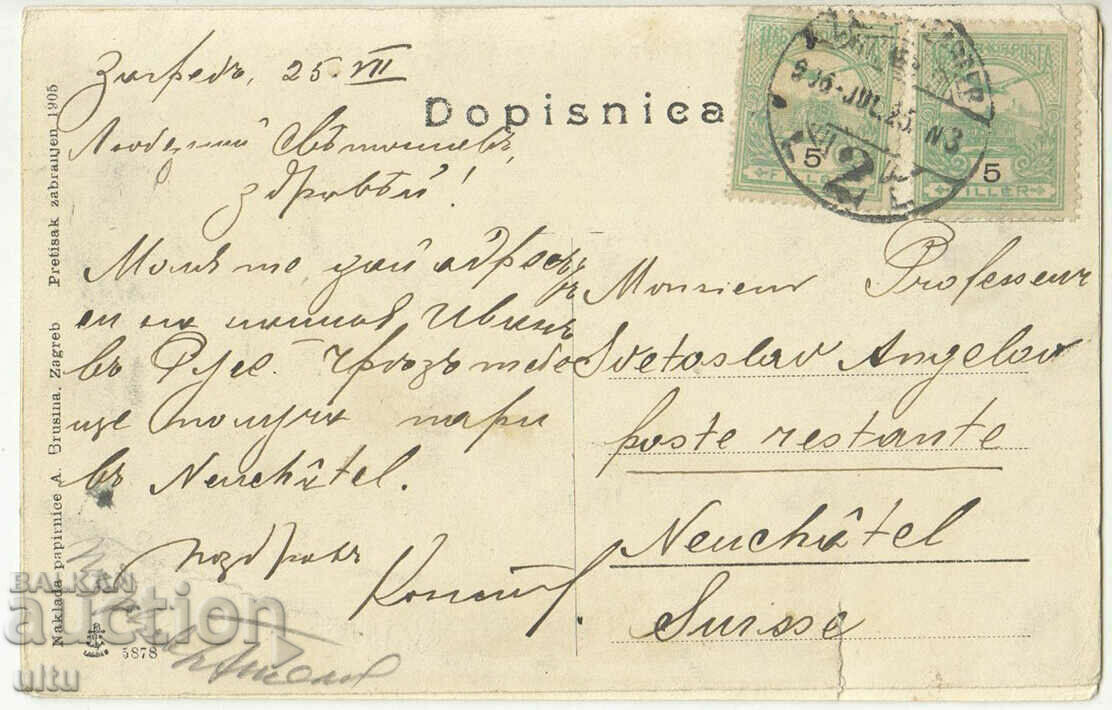 Dopisnica
Загребъ, 25. VII
Любезний Свѣтославе,
здравѣй!
Моля те, дай адресъ
си на чичо Иванъ
въ Русе. Чрѣзъ тебе
ще получа пари
въ Neuchâtel.
поздравъ
Monsieur Professeur
Svetoslav Angelov
poste restante
Neuchâtel
Suisse
5 FILLER
5 FILLER
916 -JUL.25. N3
2
Naklada papirnice A. Brusina, Zagreb Pretisak zabranjen 1905
5878
BALKAN
auction
ultu